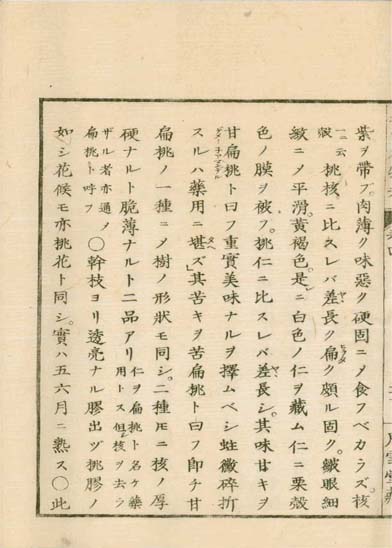 紫ヲ帶フ。肉薄ク味惡ク硬固ニ〆食フベカラズ。核
一ニ云殻 桃核ニ比スレバ差長ク扁ク頗ル固ク。縦眼細
緻ニ〆平滑。黃褐色。是ニ白色ノ仁ヲ藏ム仁ニ栗殻
色ノ膜ヲ被フ。桃仁ニ比スレバ差長シ。其味甘キヲ
甘扁桃ト曰フ重實美味ナルヲ擇ムベシ蛀微碎折
スルハ藥用ニ堪ズ」其苦キヲ苦扁桃ト曰フ即チ甘
扁桃ノ一種ニ〆樹ノ形狀モ同シ。二種㆑ニ核ノ厚
硬ナルト脆薄ナルト二品アリ 仁ヲ扁桃ト名ケ藥用トス但核ヲ去ラ
ザル者亦通〆扁桃ト呼フ ○幹枝ヨリ透亮ナル膠出ヅ桃膠ノ
如シ花候モ亦桃花ト同シ。實ハ五六月ニ熟ス○此